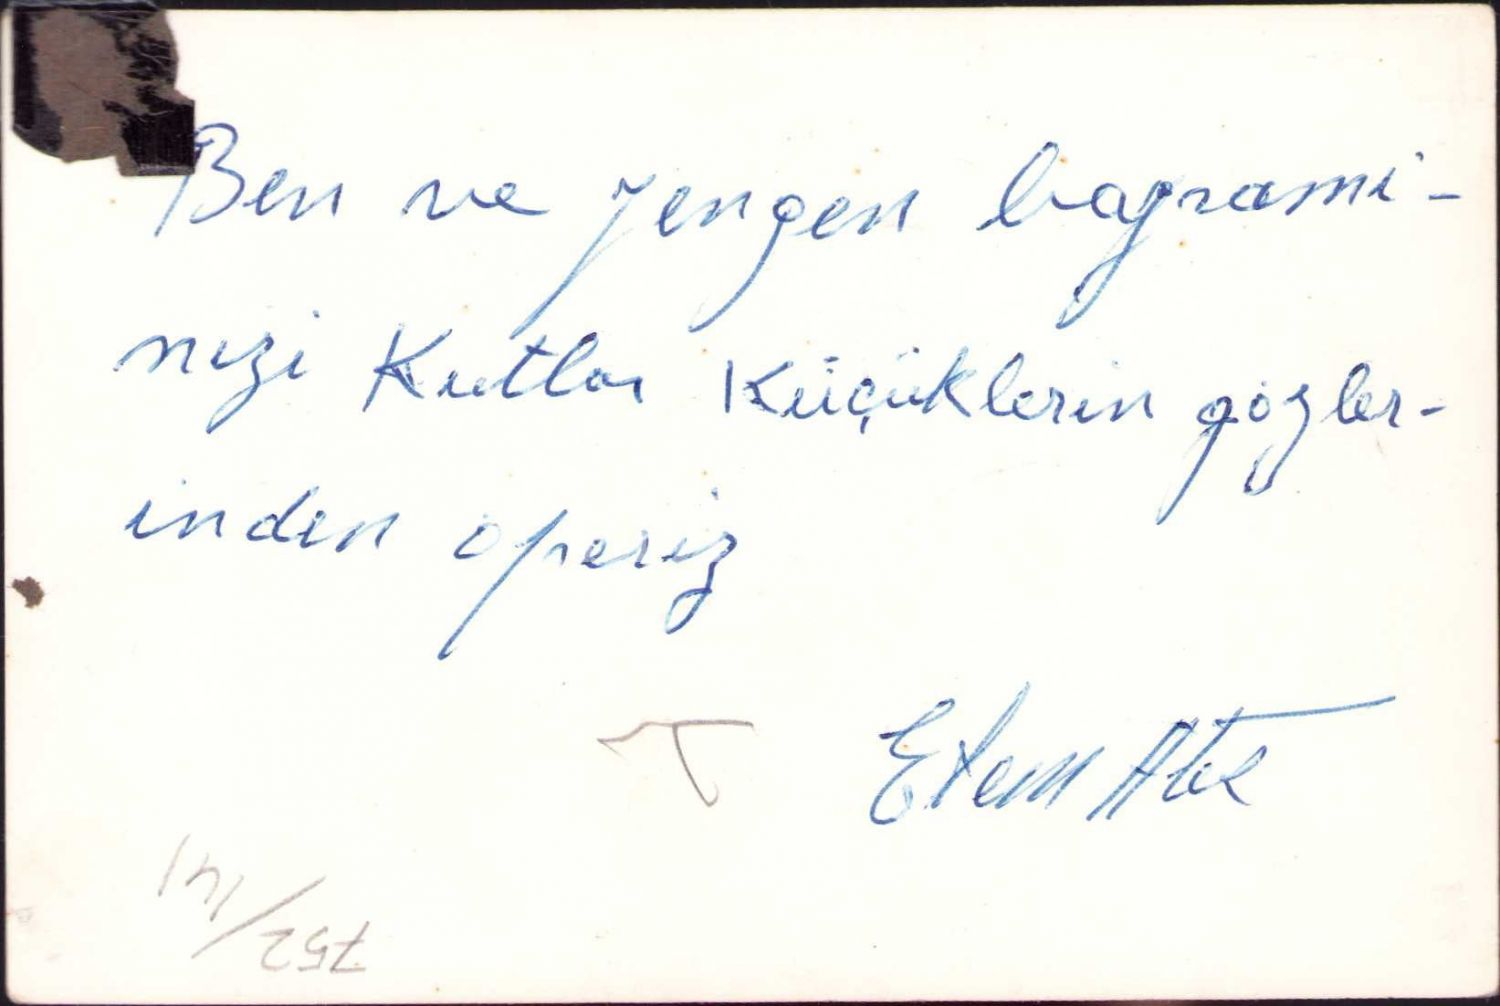 Ben ve yengen bayrami-
nızi Kutlar Küçüklerin gözler-
inden operiz
Etem Abe
752/141